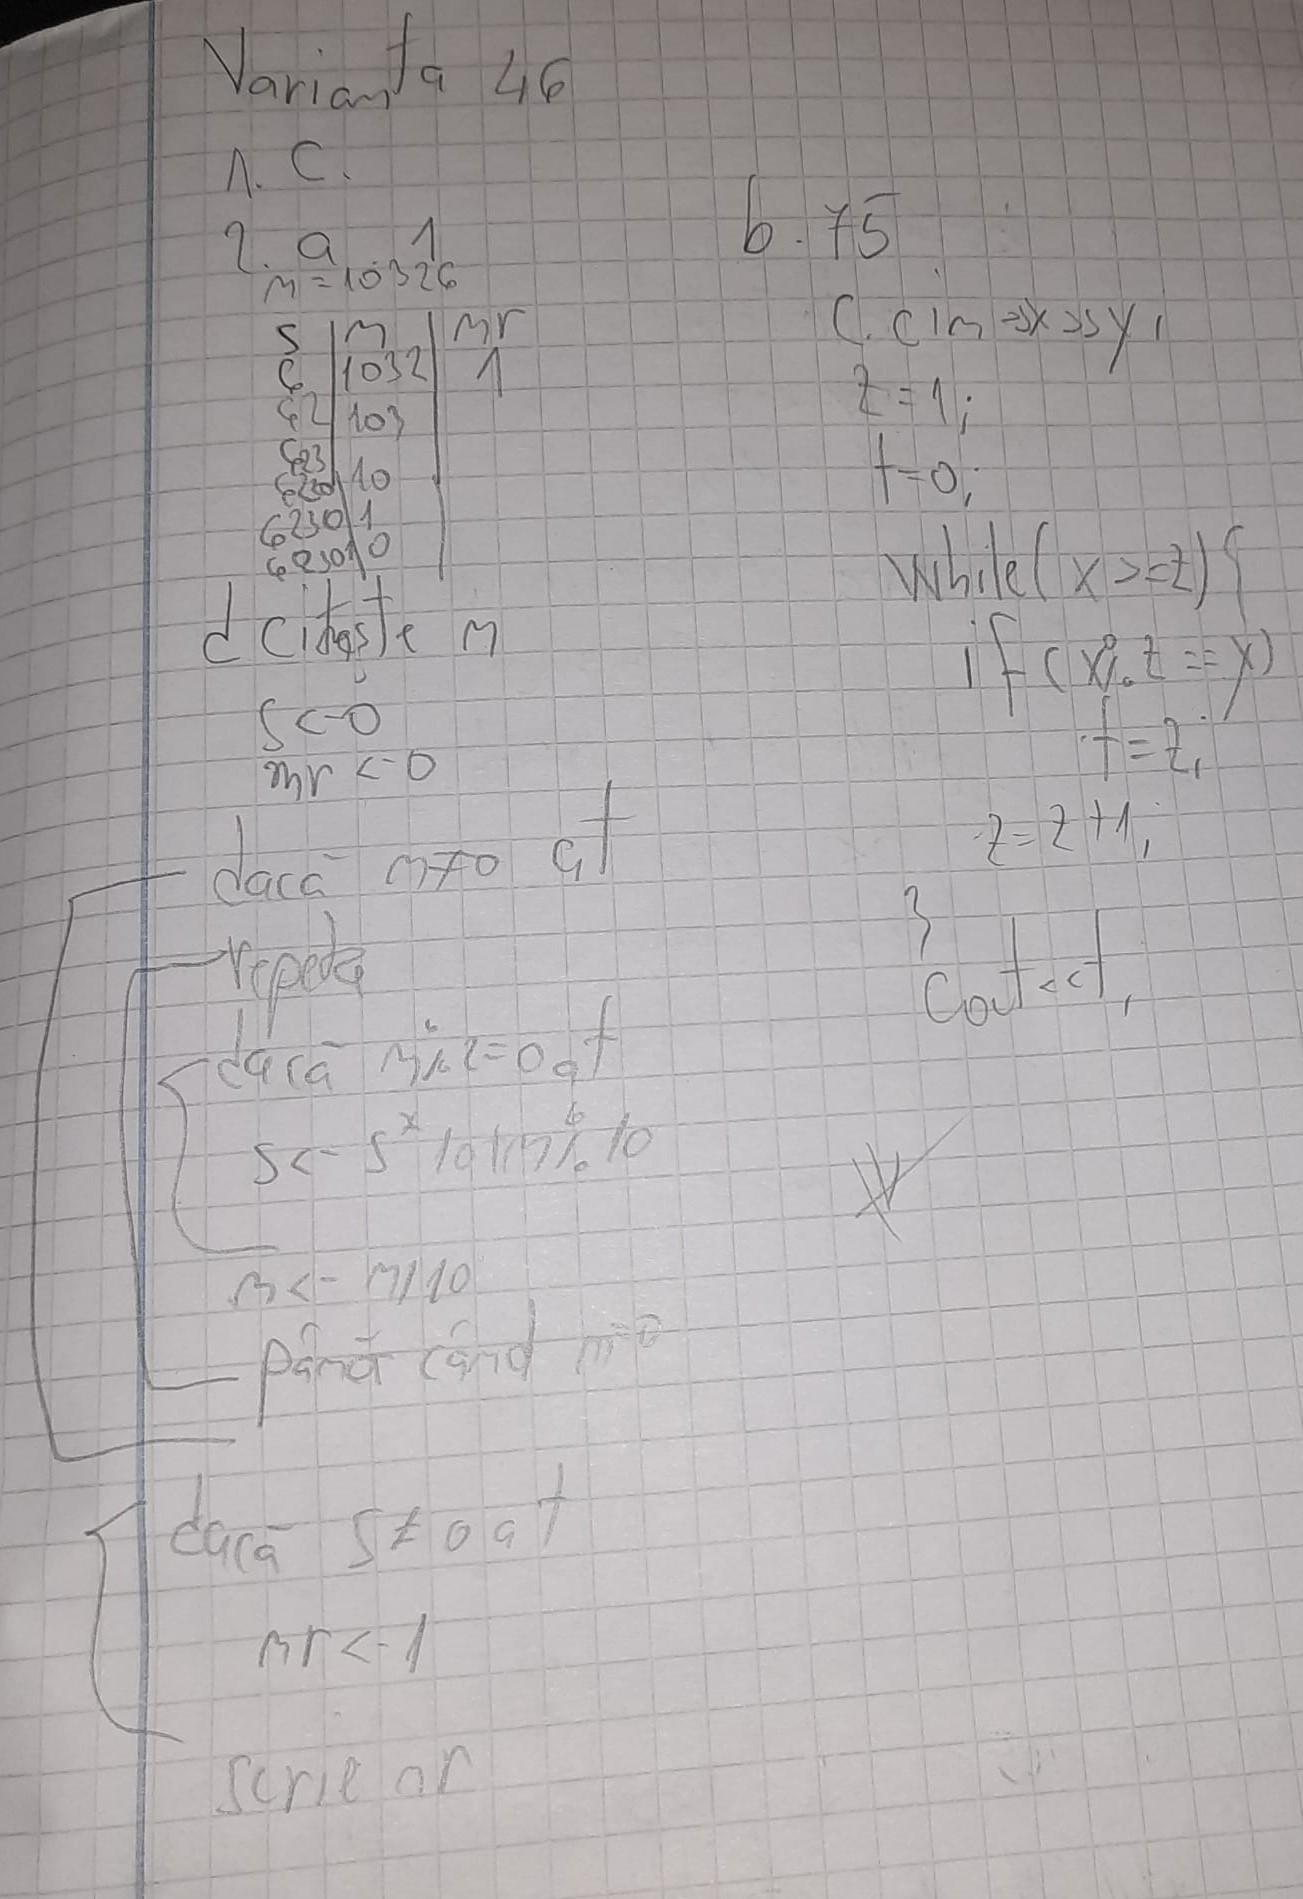 Varianta 46
1. C.
2. a 1
n=10326
s | n | nr
6 | 1032 | 1
62 | 103
623
6230 | 10
6230 | 1
62301 | 0
d citește n
s <- 0
nr <- 0
dacă n≠0 at
repetă
dacă n%2=0 at
s <- s*10+n%10
n <- n/10
până când n=0
dacă s≠0 at
nr <- 1
scrie nr
b. 75
C. cin >>x>>y;
z=1;
t=0;
while(x>=z){
if(x%z==y)
t=z;
z=z+1;
}
cout<<t;